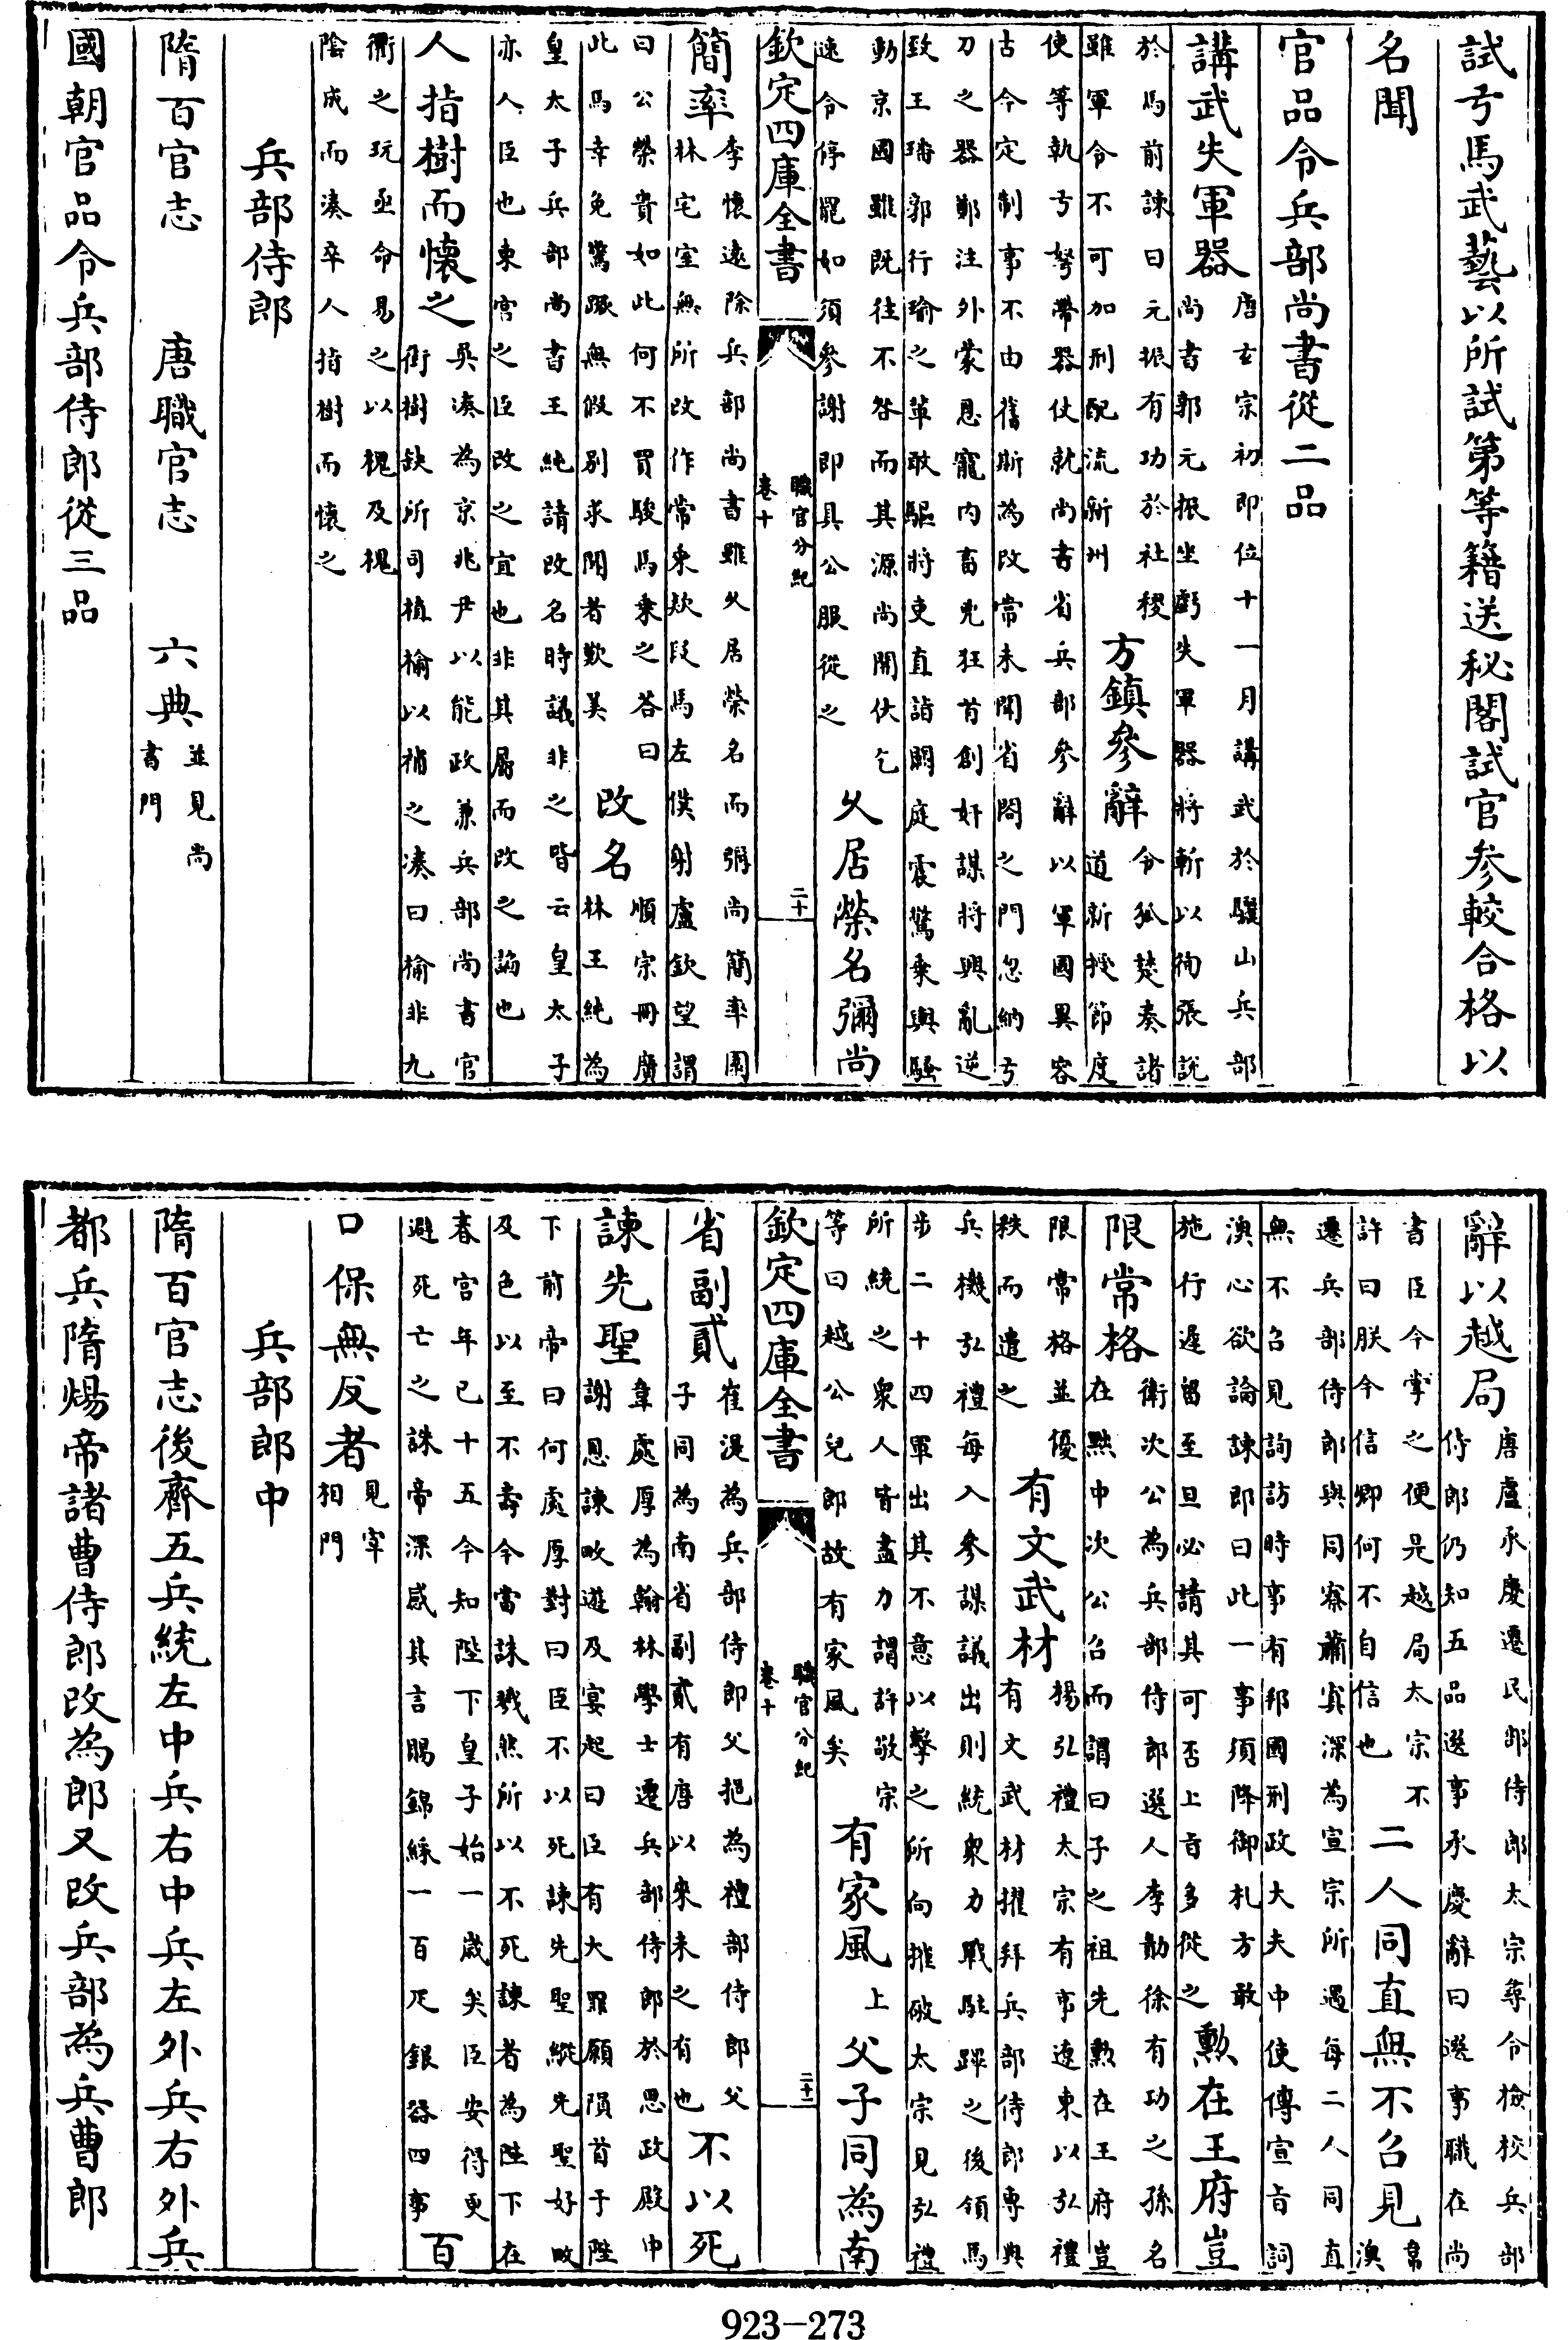 試弓馬武藝以所試第等籍送秘閣試官參較合格以
名聞
官品令兵部尚書從二品
講武失軍器唐玄宗初即位十一月講武於驪山兵部尚書郭元振坐虧失軍器將斬以徇張說
於馬前諫曰元振有功於社稷雖軍令不可加刑配流新州方鎮參辭令狐楚奏諸道新授節度
使等執弓弩帶器仗就尚書省兵部參辭以軍國異容古今定制事不由舊斯為改常未聞省閤之門忽納弓
刀之器鄭注外蒙恩寵內畜兇狂首創奸謀將興亂逆致王璠郭行瑜之輩敢驅將吏直詣闕庭震驚乘輿騷
動京國雖既往不咎而其源尚開伏乞速令停罷如須參謝即具公服從之久居榮名彌尚
欽定四庫全書 職官分紀 卷十 二十
簡率李懷遠除兵部尚書雖久居榮名而彌尚簡率園林宅室無所改作常乘欵段馬左僕射盧欽望謂
曰公榮貴如此何不買駿馬乘之荅曰此馬幸免驚蹶無假別求聞者歎美改名順宗冊廣林王純為
皇太子兵部尚書王純請改名時議非之皆云皇太子亦人臣也東宮之臣改之宜也非其屬而改之諂也
人指樹而懷之吳湊為京兆尹以能政兼兵部尚書官街樹缺所司植榆以補之湊曰榆非九
衢之玩亟命易之以槐及槐陰成而湊卒人指樹而懷之
兵部侍郎
隋百官志 唐職官志 六典並見尚書門
國朝官品令兵部侍郎從三品
辭以越局唐盧承慶遷民部侍郎太宗尋令檢校兵部侍郎仍知五品選事承慶辭曰選事職在尚
書臣今掌之便是越局太宗不許曰朕今信卿何不自信也二人同直無不召見韋澳
遷兵部侍郎與同寮蕭寘深為宣宗所遇每二人同直無不召見詢訪時事有邦國刑政大夫中使傳宣旨詞
澳心欲論諫即曰此一事須降御札方敢施行遲留至旦必請其可否上旨多從之勲在王府豈
限常格衛次公為兵部侍郎選人李勣徐有功之孫名在黜中次公召而謂曰子之祖先勲在王府豈
限常格並優秩而遣之有文武材楊弘禮太宗有事遼東以弘禮有文武材擢拜兵部侍郎專典
兵機弘禮每入參謀議出則統衆力戰駐蹕之後領馬步二十四軍出其不意以擊之所向摧破太宗見弘禮
所統之衆人皆盡力謂許敬宗等曰越公兒郎故有家風矣有家風上父子同為南
欽定四庫全書 職官分紀 卷十 二十一
省副貳崔湜為兵部侍郎父挹為禮部侍郎父子同為南省副貳有唐以來未之有也不以死
諫先聖韋處厚為翰林學士遷兵部侍郎於思政殿中謝恩諫畋遊及宴起曰臣有大罪願隕首于陛
下前帝曰何處厚對曰臣不以死諫先聖縱先聖好畋及色以至不壽今當誅戮然所以不死諫者為陛下在
春宮年已十五今知陛下皇子始一歲矣臣安得更避死亡之誅帝深感其言賜錦綵一百疋銀器四事百
口保無反者見宰相門
兵部郎中
隋百官志後齊五兵統左中兵右中兵左外兵右外兵
都兵隋煬帝諸曹侍郎改為郎又改兵部為兵曹郎
923-273